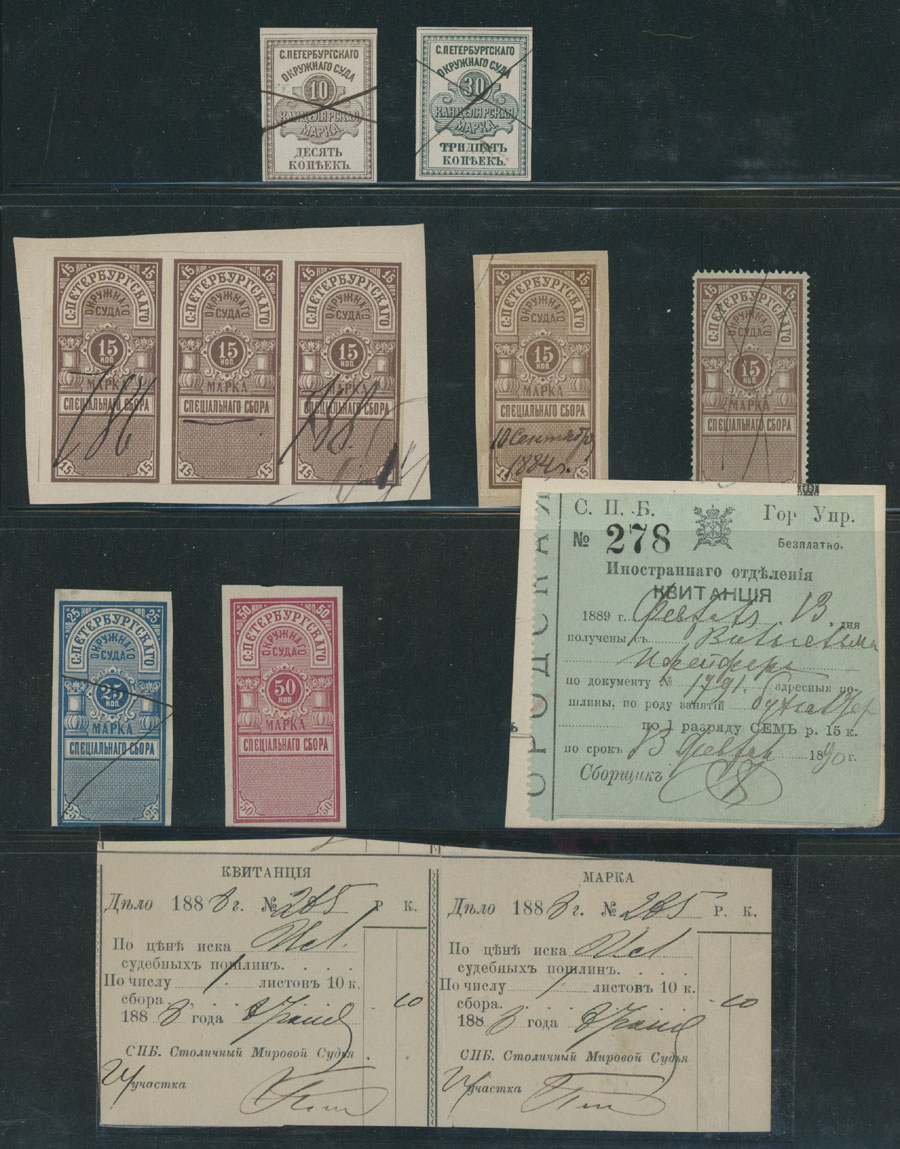 С. ПЕТЕРБУРГСКАГО
ОКРУЖНАГО СУДА
10
КАНЦЕЛЯРСКАЯ
МАРКА
ДЕСЯТЬ
КОПѢЕКЪ.
С. ПЕТЕРБУРГСКАГО
ОКРУЖНАГО СУДА
30
КАНЦЕЛЯРСКАЯ
МАРКА
ТРИДЦАТЬ
КОПѢЕКЪ.
15 15
С. ПЕТЕРБУРГСКАГО
ОКРУЖНАГО
СУДА
15
КОП.
МАРКА
СПЕЦІАЛЬНАГО СБОРА
15 15
15 15
С. ПЕТЕРБУРГСКАГО
ОКРУЖНАГО
СУДА
15
КОП.
МАРКА
СПЕЦІАЛЬНАГО СБОРА
15 15
15 15
С. ПЕТЕРБУРГСКАГО
ОКРУЖНАГО
СУДА
15
КОП.
МАРКА
СПЕЦІАЛЬНАГО СБОРА
15 15
15 15
С. ПЕТЕРБУРГСКАГО
ОКРУЖНАГО
СУДА
15
КОП.
МАРКА
СПЕЦІАЛЬНАГО СБОРА
10 Сентября
1884 г.
15 15
15 15
С. ПЕТЕРБУРГСКАГО
ОКРУЖНАГО
СУДА
15
КОП.
МАРКА
СПЕЦІАЛЬНАГО СБОРА
25 КОП 25
С. ПЕТЕРБУРГСКАГО
ОКРУЖНАГО
СУДА
25
КОП.
МАРКА
СПЕЦІАЛЬНАГО СБОРА
25 25
50 КОП 50
С. ПЕТЕРБУРГСКАГО
ОКРУЖНАГО
СУДА
50
КОП.
МАРКА
СПЕЦІАЛЬНАГО СБОРА
50 50
С. П. Б. Гор Упр.
№ 278 Безплатно.
Иностраннаго отдѣленія
КВИТАНЦІЯ
1889 г. 13 дня
получены съ
по документу № 1791, адресные по-
шлины, по роду занятій
по 1 разряду СЕМЬ р. 15 к.
по срокъ 13 1890 г.
Сборщикъ
КВИТАНЦІЯ
Дѣло 1888 г. № 265 Р. К.
По цѣнѣ иска
судебныхъ пошлинъ.
По числу 1 листовъ 10 к.
сбора. 10
1888 года
СПБ. Столичный Мировой Судья
участка
МАРКА
Дѣло 1888 г. № 265 Р. К.
По цѣнѣ иска
судебныхъ пошлинъ.
По числу 1 листовъ 10 к.
сбора. 10
1888 года
СПБ. Столичный Мировой Судья
участка